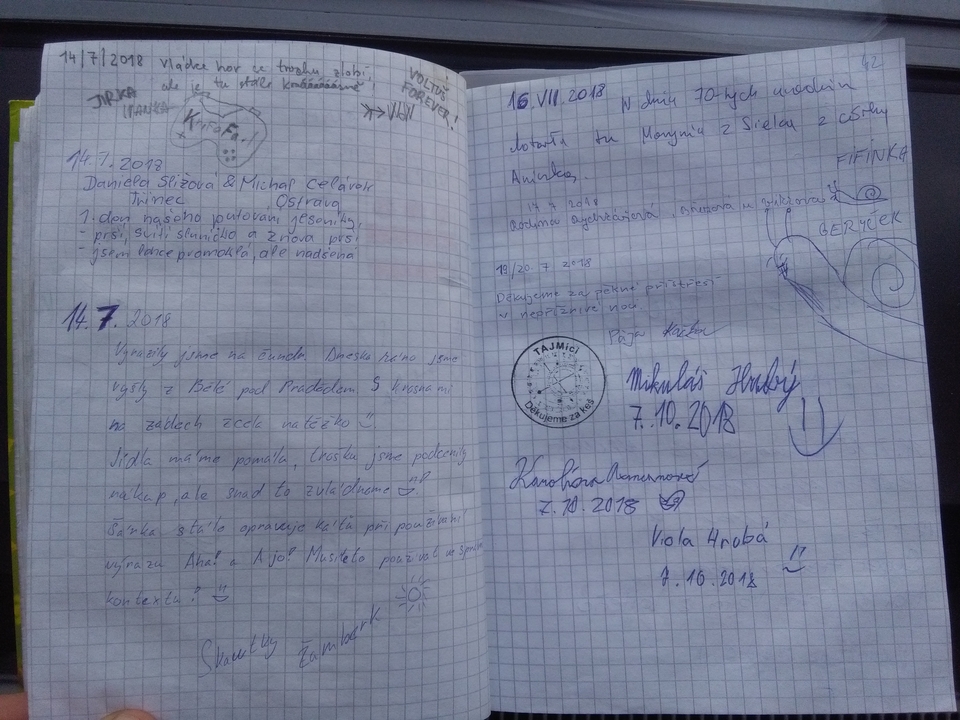 14/7/2018 vládce hor se trochu zlobí,
ale je tu stále krááááásně!
JIRKA
IVANKA
KniFaFa!
VOLTUŠ
FOREVER!
14.7.2018
Daniela Slížová & Michal
Třinec Ostrava
1. den našeho putování Jeseníky,
- prší, svítí sluníčko a znova prší
- jsem lehce promoklá, ale nadšená
14.7. 2018
Vyrazily jsme na čundr. Dneska ráno jsme
vyšly z Bělé pod Pradědem s krosnami
na zádech zcela natěžko
Jídla máme pomálu, trošku jsme podcenily
nákup, ale snad to zvládneme
Šárka stále opravuje Káťa při používání
výrazu Aha! a A jo! Musíte to používat ve správ
kontextu?
Skautky Žamberk
42
16.VII.2018 W dniu 70-tych urodzin
dotarła tu Marynia z Sielca z córką
Aninką.
FIFINKA
17.7.2018
GERYČEK
19/20.7 2018
Děkujeme za pěkné přístřeší
v nepříznivé noci.
Pája
TAJMiči
Děkujeme za keš
Mikuláš Hrubý
7.10.2018
Karolína
7.10.2018
Viola Hrubá
7.10.2018